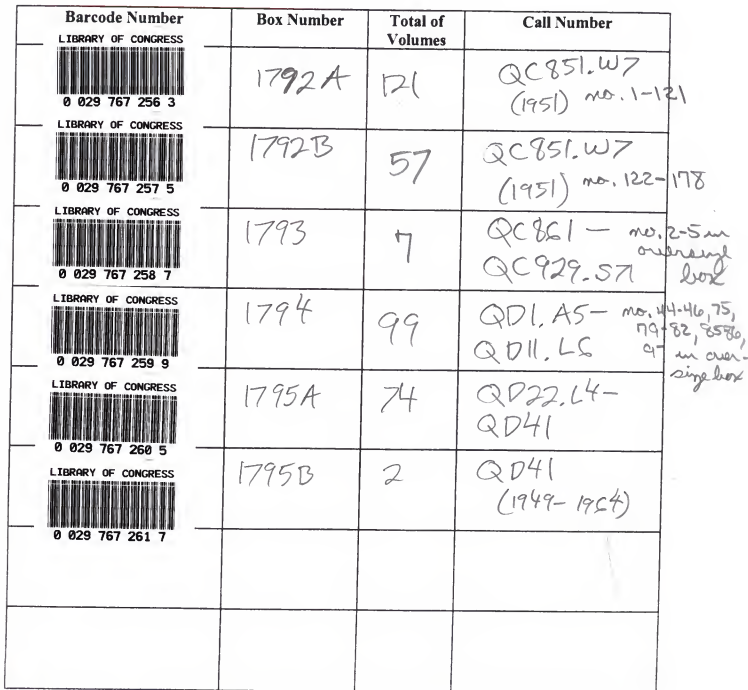 Barcode Number Box Number Total of Volumes Call Number
LIBRARY OF CONGRESS
0 029 767 256 3
1792A 121 QC851.W7
(1951) no. 1-121
LIBRARY OF CONGRESS
0 029 767 257 5
1792B 57 QC851.W7
(1951) no. 122-178
LIBRARY OF CONGRESS
0 029 767 258 7
1793 7 QC861 — no. 2-5 in
QC929.S71 box
LIBRARY OF CONGRESS
0 029 767 259 9
1794 99 QD1.A5— no. 44-46, 75,
79-82, 8586,
QD11.L6 in over-
size box
LIBRARY OF CONGRESS
0 029 767 260 5
1795A 74 QD22.L4-
QD41
LIBRARY OF CONGRESS
0 029 767 261 7
1795B 2 QD41
(1949-1964)